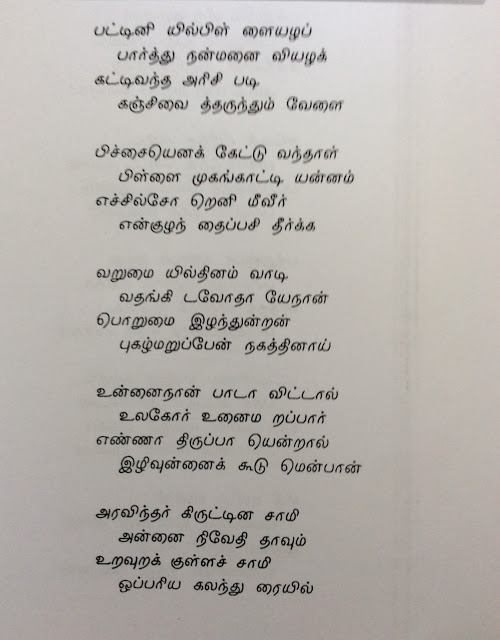 பட்டினி யில்பிள் ளையழப்
பார்த்து நன்மனை வியழக்
கட்டிவந்த அரிசி படி
கஞ்சிவை த்தருந்தும் வேளை
பிச்சையெனக் கேட்டு வந்தாள்
பிள்ளை முகங்காட்டி யன்னம்
எச்சில்சோ றெனி மீவீர்
என்குழந் தைப்பசி தீர்க்க
வறுமை யில்தினம் வாடி
வதங்கி டவோதா யேநான்
பொறுமை இழந்துன்றன்
புகழ்மறுப்பேன் நகத்தினாய்
உன்னைநான் பாடா விட்டால்
உலகோர் உனைம றப்பார்
எண்ணா திருப்பா யென்றால்
இழிவுன்னைக் கூடு மென்பான்
அரவிந்தர் கிருட்டின சாமி
அன்னை நிவேதி தாவும்
உறவுறக் குள்ளச் சாமி
ஒப்பரிய கலந்து ரையில்